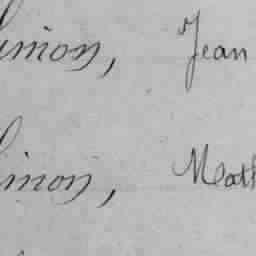 imon, Jean
imon, Math